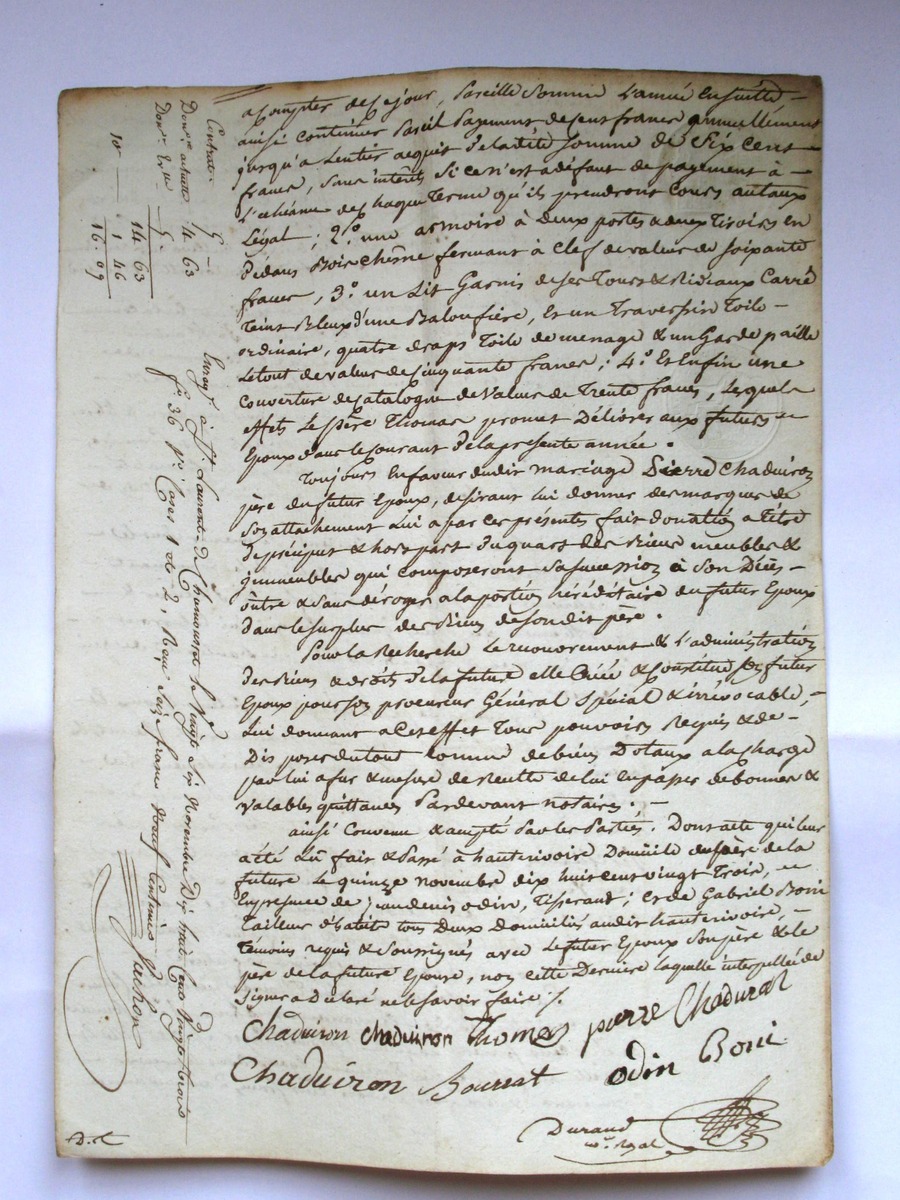 a Compter de Ce jour, Pareille Somme L'année Ensuitte
ainsi Continuer Pareil Payement de Cent francs annuellement
jusqu'a Lentier acquit de la dite Somme de Six Cent
francs, Sans intérêts Si ce n'est a défaut de payement à
l'échéance de chaque Terme qu'ils prendront Cours au taux
Légal ; 2.º une armoire à deux portes & deux Tiroirs en
Dedans Bois Chêne fermant à Clef de valeur de Soixante
francs, 3.º un Lit Garni de Ses Tours & Rideaux Carré
Teint Bleux d'une Baloufière, Et un Traversin Toile
ordinaire, quatre draps Toile de menage & un Garde paille
Le tout de valeur de Cinquante francs ; 4.º Et Enfin une
Couverture de Catalogne de Valeur de Trente francs, Lesquels
effets Le père Thomas promet Délivrer aux futurs
Epoux dans le Courant de la presente année.
Toujours En faveur dudit mariage Pierre Chaduiron
père du futur Epoux, desirant lui donner des marques de
Son attachement Lui a par ces présentes fait donation a Titre
De préciput & hors part Du quart des Biens meubles &
jmmeubles qui Composeront Sa Succession à Son Décès
outre & Sans déroger a la portion héréditaire du futur Epoux
Dans le Surplus des Biens de Son dit père.
Pour La Recherche Le recouvrement & L'administration
des Biens & droits de la future elle Créée & Constitue Son futur
Epoux pour Son procureur Général Spécial & irrévocable,
Lui donnant a Cet effet Tous pouvoirs Requis & de
Disposer du tout Comme de biens Dotaux a la charge
par lui a fur & mesure de Recette de lui En passer de bonnes &
valables quittances Pardevant notaires.
ainsi Convenu & accepté Par les Parties. Dont acte qui leur
a été Lu fait & Passé à hauterivoire Domicile du père de la
future Le quinze novembre dix huit cent vingt Trois, en
En presence de jean denis odin, Tisserant ; Et de Gabriel Boni
Tailleur d'habits tous Deux domiciliés audit hauterivoire,
Témoins requis & Soussignés avec Le futur Epoux Son père & le
père de la future Epouse, non cette Derniere laquelle interpellée de
Signer a Déclaré ne le Savoir faire ./.
Chaduiron Chaduiron Thomas pierre Chadurat
Chaduiron Bourrat odin Boni
Durand
no.re royal
D. et
Contrat 5 –
Don.on actuelle 4 63
Don.on Ev.lle 5 –
14 63
10e 1 46
16 09
Enreg.é à S.t Laurent de Chamousset le Vingt Six Novembre Dix huit Cent Vingt trois
f.o 36 r.o Cases 1 et 2, Reçu Seize francs Neuf Centimes